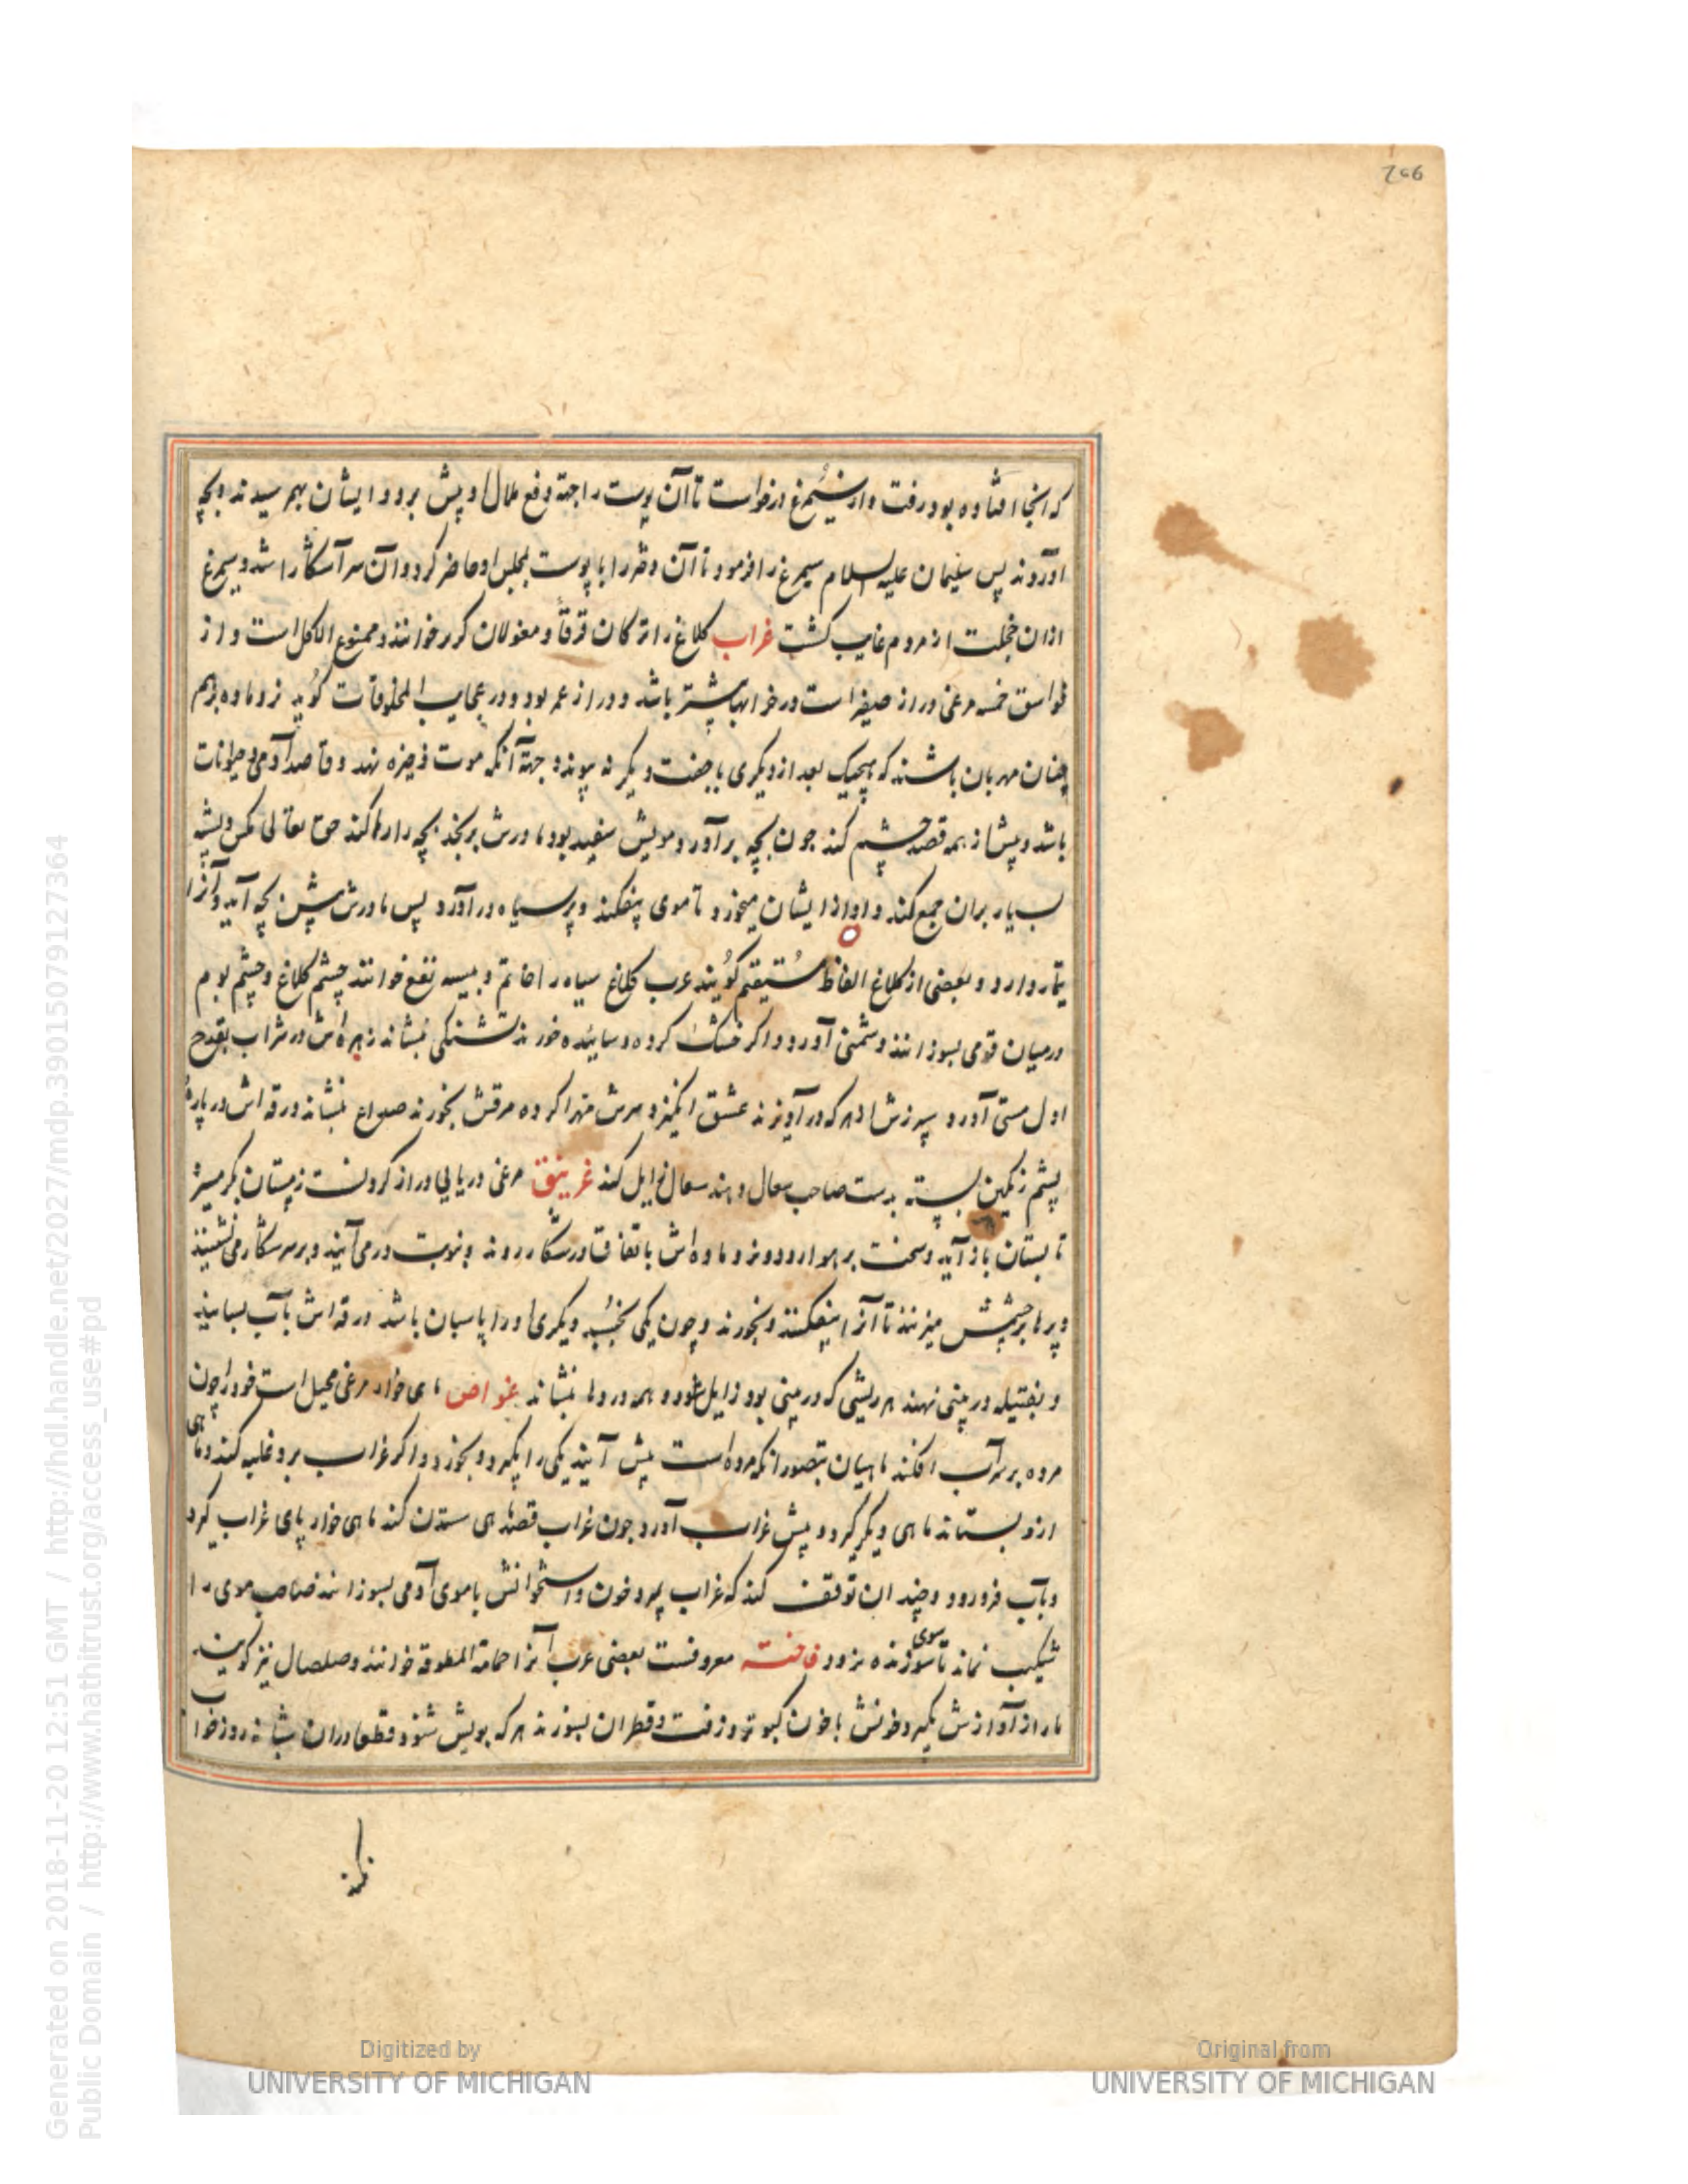 206
که آنجا افتاده بود رفت و از سیمرغ درخواست تا آن پوست را جهة دفع ملال او پیش برد و ایشان بهم رسیدند و بچه
آوردند پس سلیمان علیه السلام سیمرغ را فرمود تا آن دختر را با پوست بمجلس او حاضر کرد و آن سر آشکارا شد و سیمرغ
ازان خجلت از مردم غایب کشت غراب کلاغ را ترکان قرقا و مغولان کرر خوانند و ممنوع الاکل است و از
فواسق خمسه مرغی دراز صفیر است در خرابها بیشتر باشد و دراز عمر بود و در عجایب المخلوقات کوید نر و ماده بهم
چنان مهربان باشند که هیچیک بعد از دیکری با جفت دیکر نه پیوندد جهة آنکه موت ذخیره نهد و قاصد آدمی و حیوانات
باشد و پیش از همه قصد چشم کند چون بچه برآورد مویش سفید بود مادرش برنجد بچه را رها کند حق تعالی مکس و پشه
بسیار بران جمع کند و او از ایشان میخورد تا موی بیفکند و پر سیاه درآورد پس مادرش پیش بچه آید و آنرا
تیمار دارد و بعضی از کلاغ الفاظ مستقیم کویند عرب کلاغ سیاه را خاتم و پیسه را بقع خوانند چشم کلاغ و چشم بوم
درمیان قومی بسوزانند دشمنی آورد و اکر خشک کرده و ساییده خورند تشنکی بنشاند زهره اش در شراب بقدح
اول مستی آورد سپرزش از هرکه درآویزند عشق انکیزد سرش مهرا کرده مرقش بخورند صداع بنشاند ورقه اش در پارهٔ
پشم رنکین بسته بدست صاحب سعال دهند سعال زایل کند غرنیق مرغی دریایی دراز کردنست زمستان بکرمسیر
تابستان باز آید و سخت بر هوا رود و نر و ماده اش باتفاق در شکار روند و بنوبت درمی آیند و بر سر شکار می نشینند
و پرها بر چشمش میزنند تا آنرا بیفکنند و بخورند و چون یکی بخسپد دیکری او را پاسبان باشد ورقه اش بآب بسایند
و بفتیله در بینی نهند هر ریشی که در بینی بود زایل شود و همه دردها بنشاند غواص ماهی خوار مرغی محیل است خود را چون
مرده بر سر آب افکند ماهیان بتصور آنکه مرده است پیش آیند یکی را بکیرد و بخورد و اکر غراب برو غلبه کند و ماهی
ازو بستاند ماهی دیکر کیرد و پیش غراب آورد چون غراب قصد ماهی ستدن کند ماهی خوار پای غراب کیرد
و بآب فرورود و چندان توقف کند که غراب بمیرد خون و استخوانش با موی آدمی بسوزانند صاحب موی را
شکیب نماند تا سوی سوزنده نرود فاخته معروفست بعضی عرب آنرا حمامة المطوقة خوانند و صلصال نیز کویند
مار از آوازش بکریزد خونش با خون کبوتر و زفت و قطران بسوزند هرکه بویش شنود قطعا دران شبانه روز خواب
نکند
Generated on 2018-11-20 12:51 GMT / http://hdl.handle.net/2027/mdp.39015079127364
Public Domain / http://www.hathitrust.org/access_use#pd
Digitized by
UNIVERSITY OF MICHIGAN
Original from
UNIVERSITY OF MICHIGAN